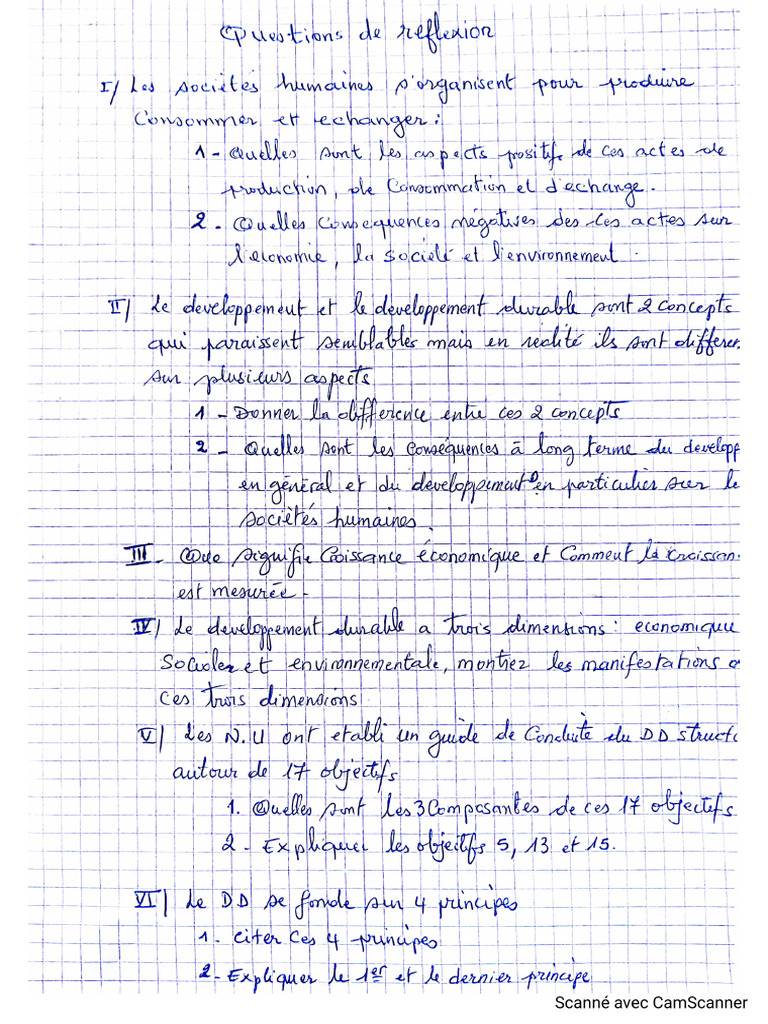 Questions de reflexion
I/ Les sociétés humaines s'organisent pour produire
Consommer et echanger :
1 - Quelles sont les aspects positifs de ces actes de
production, de Consommation et d'echange.
2 - Quelles Consequences négatives des ces actes sur
l'economie, la société et l'environnement.
II/ Le developpement et le développement durable sont 2 concepts
qui paraissent semblables mais en réalité ils sont differen
sur plusieurs aspects
1 - Donner la difference entre ces 2 concepts
2 - Quelles sont les conséquences à long terme du developp
en général et du développement D en particulier sur le
sociètés humaines.
III - Que signifie Croissance économique et Comment la croissan
est mesurée.
IV/ Le developpement durable a trois dimensions : economique
Sociales et environnementale, montrez les manifestations d
ces trois dimensions
V/ Les N.U ont etabli un guide de Conduite du DD structu
autour de 17 objectifs
1. Quelles sont les 3 Composantes de ces 17 objectifs
2 - Expliquer les objectifs 5, 13 et 15.
VI/ Le DD se fonde sur 4 principes
1 - Citer Ces 4 principes
2 - Expliquer le 1er et le dernier principe
Scanné avec CamScanner